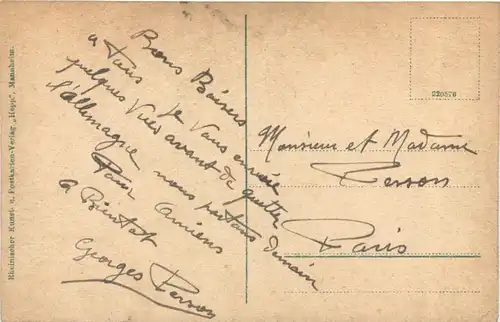 Bons Baisers
a Tous Je Vous envoie
quelques Vues avant de quitter
l'allemagne nous partons demain
Pour Amiens
a Bientot
Georges Person
Monsieur et Madame
Persson
Paris
220576
Rheinischer Kunst- u. Postkarten-Verlag „Hupp“, Mannheim.